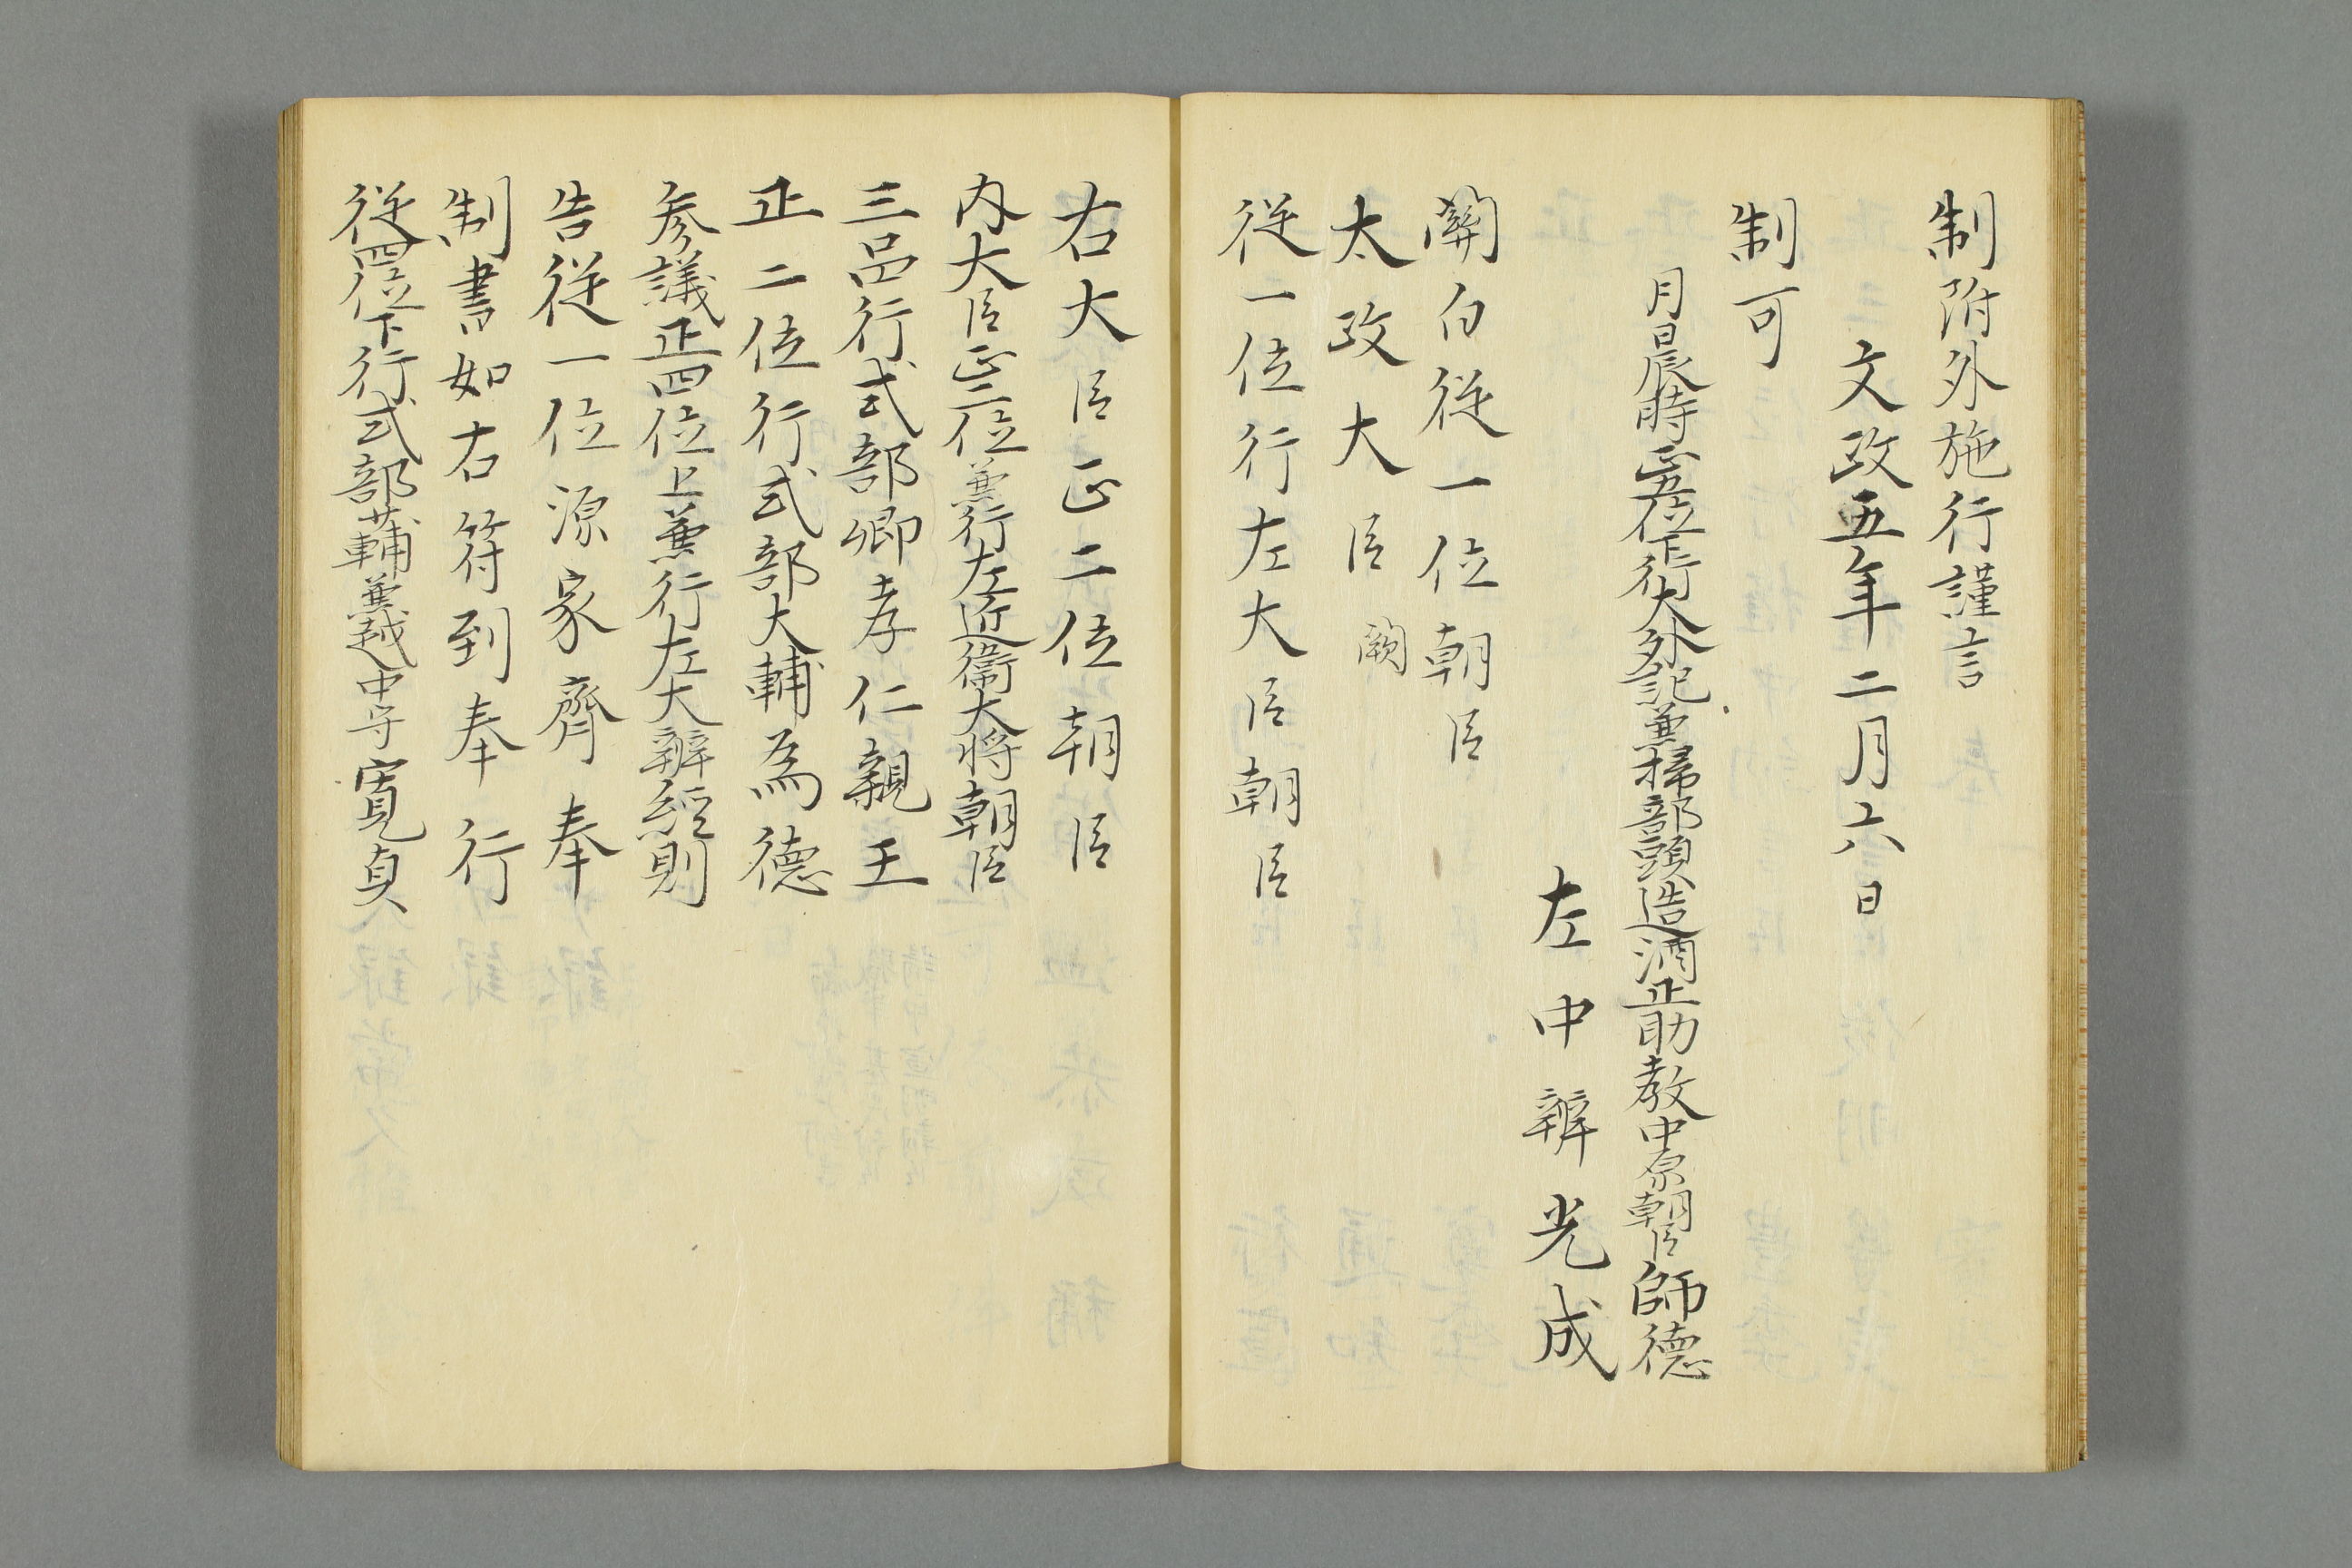 制附外施行謹言
文政五年二月六日
制可
月日辰時正五位下行大外記兼掃部頭造酒正助教中原朝臣師德
左中辨光成
關白従一位朝臣
太政大臣闕
従一位行左大臣朝臣
右大臣正二位朝臣
内大臣正二位兼行左近衞大将朝臣
三品行式部卿孝仁親王
正二位行式部大輔為德
参議正四位上兼行左大辨經則
告従一位源家齊奉
制書如右符到奉行
従四位下行式部權大輔兼越中守寛貞